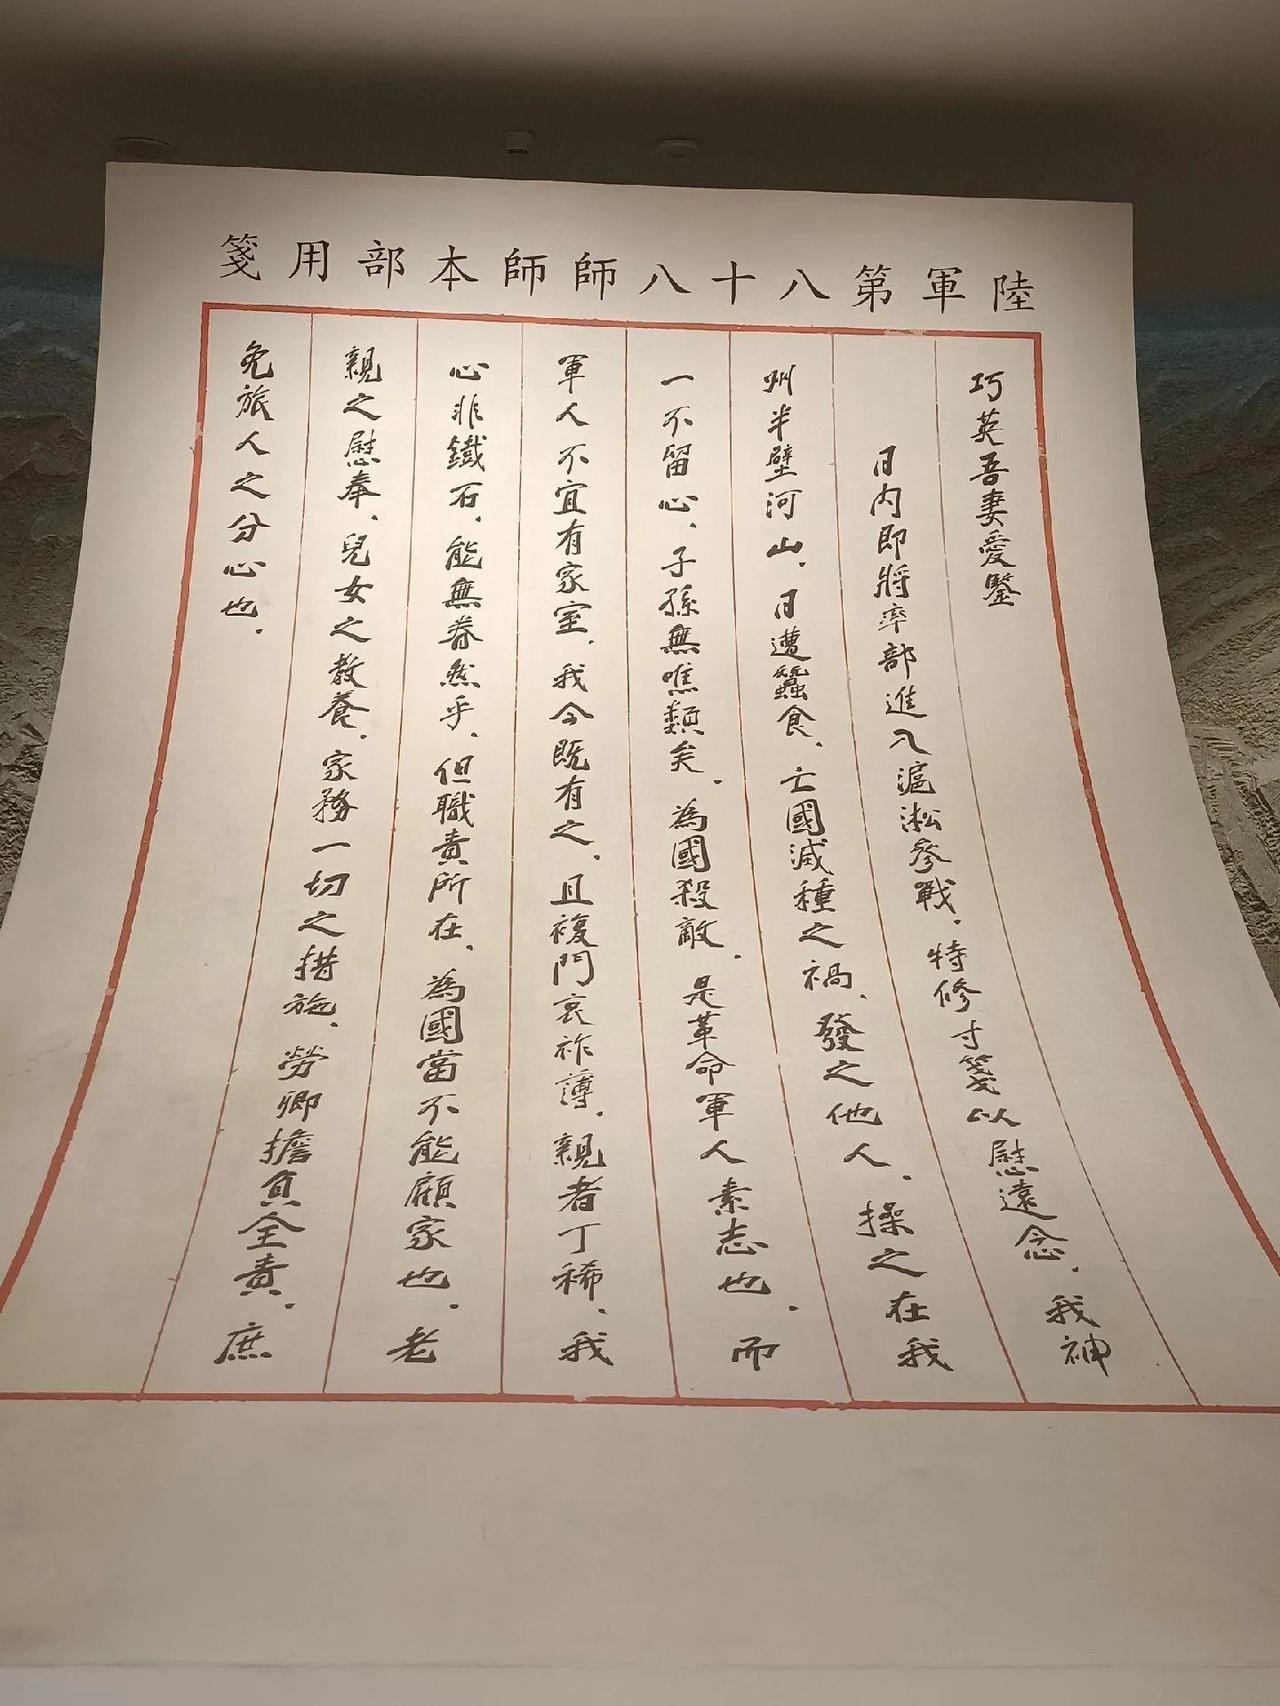 陸軍第八十八師師本部用箋
巧英吾妻愛鑒
日內即將率部進入滬淞參戰.特修寸箋以慰遠念.我神
州半壁河山.日遭蠶食.亡國滅種之禍.發之他人.操之在我
一不留心.子孫無噍類矣.為國殺敵.是革命軍人素志也.而
軍人不宜有家室.我今既有之.且複門哀祚薄.親者丁稀.我
心非鐵石.能無眷然乎.但職責所在.為國當不能顧家也.老
親之慰奉.兒女之教養.家務一切之措施.勞卿擔負全責.庶
免旅人之分心也.